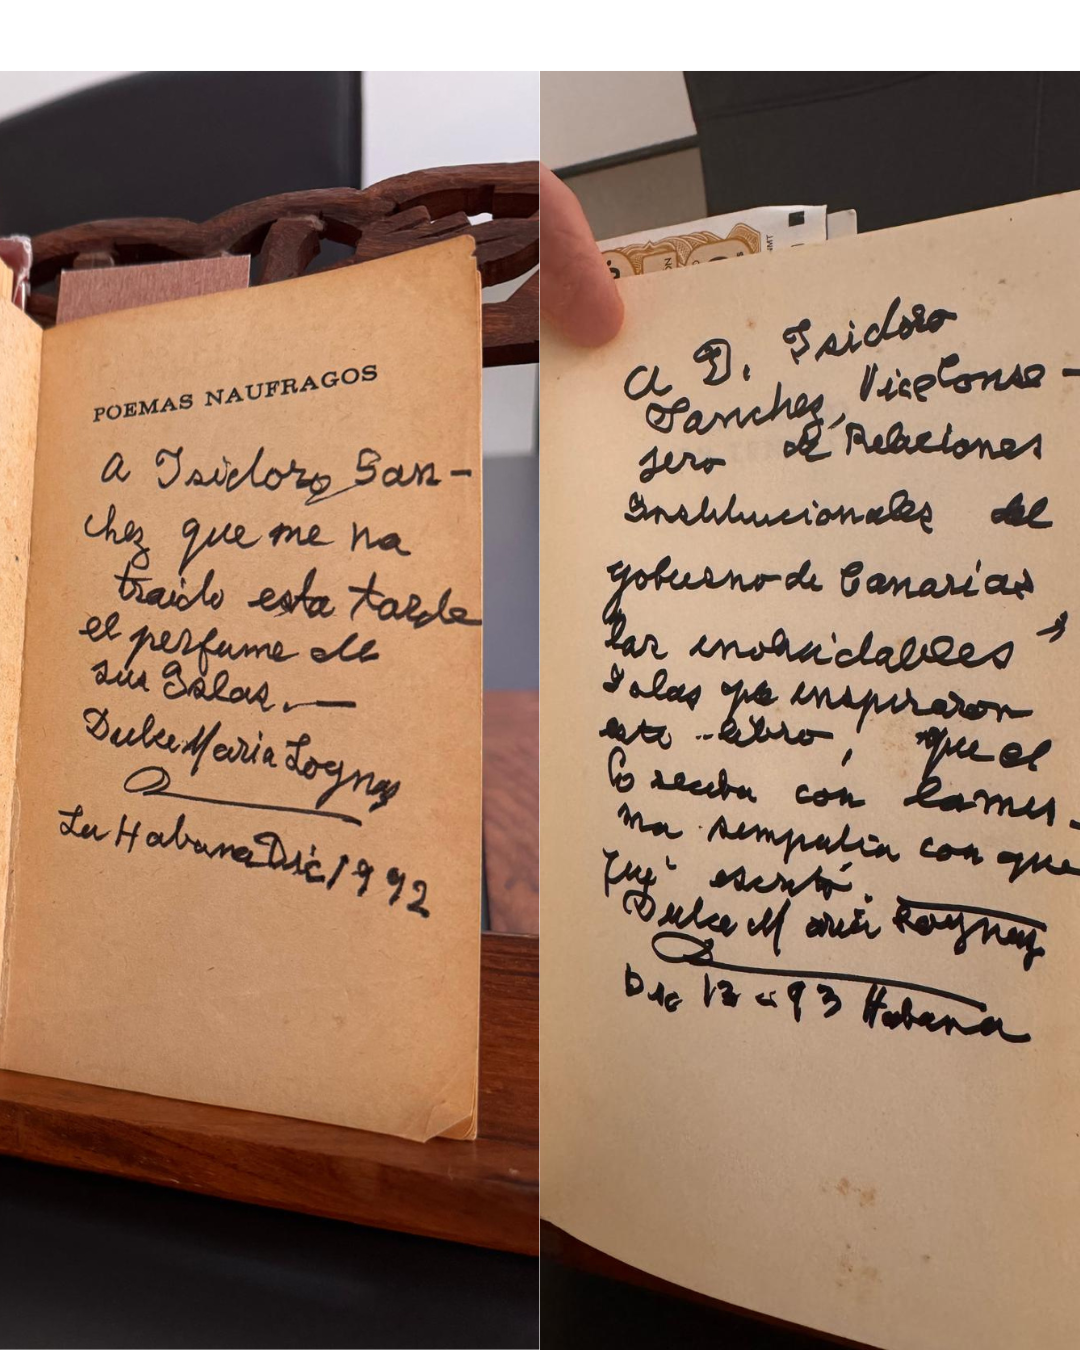 POEMAS NAUFRAGOS
A Isidoro San-
chez que me ha
traido esta tarde
el perfume de
sus Islas.—
Dulce Maria Loynaz
La Habana Dic 1992
A D. Isidoro
Sanchez, ViceConse-
jero de Relaciones
Institucionales del
gobierno de Canarias
las inolvidables
Islas que inspiraron
este libro, que el
lo reciba con la mis-
ma simpatia con que
fué escrito.
Dulce Maria Loynaz
Dic 13 - 93 Habana